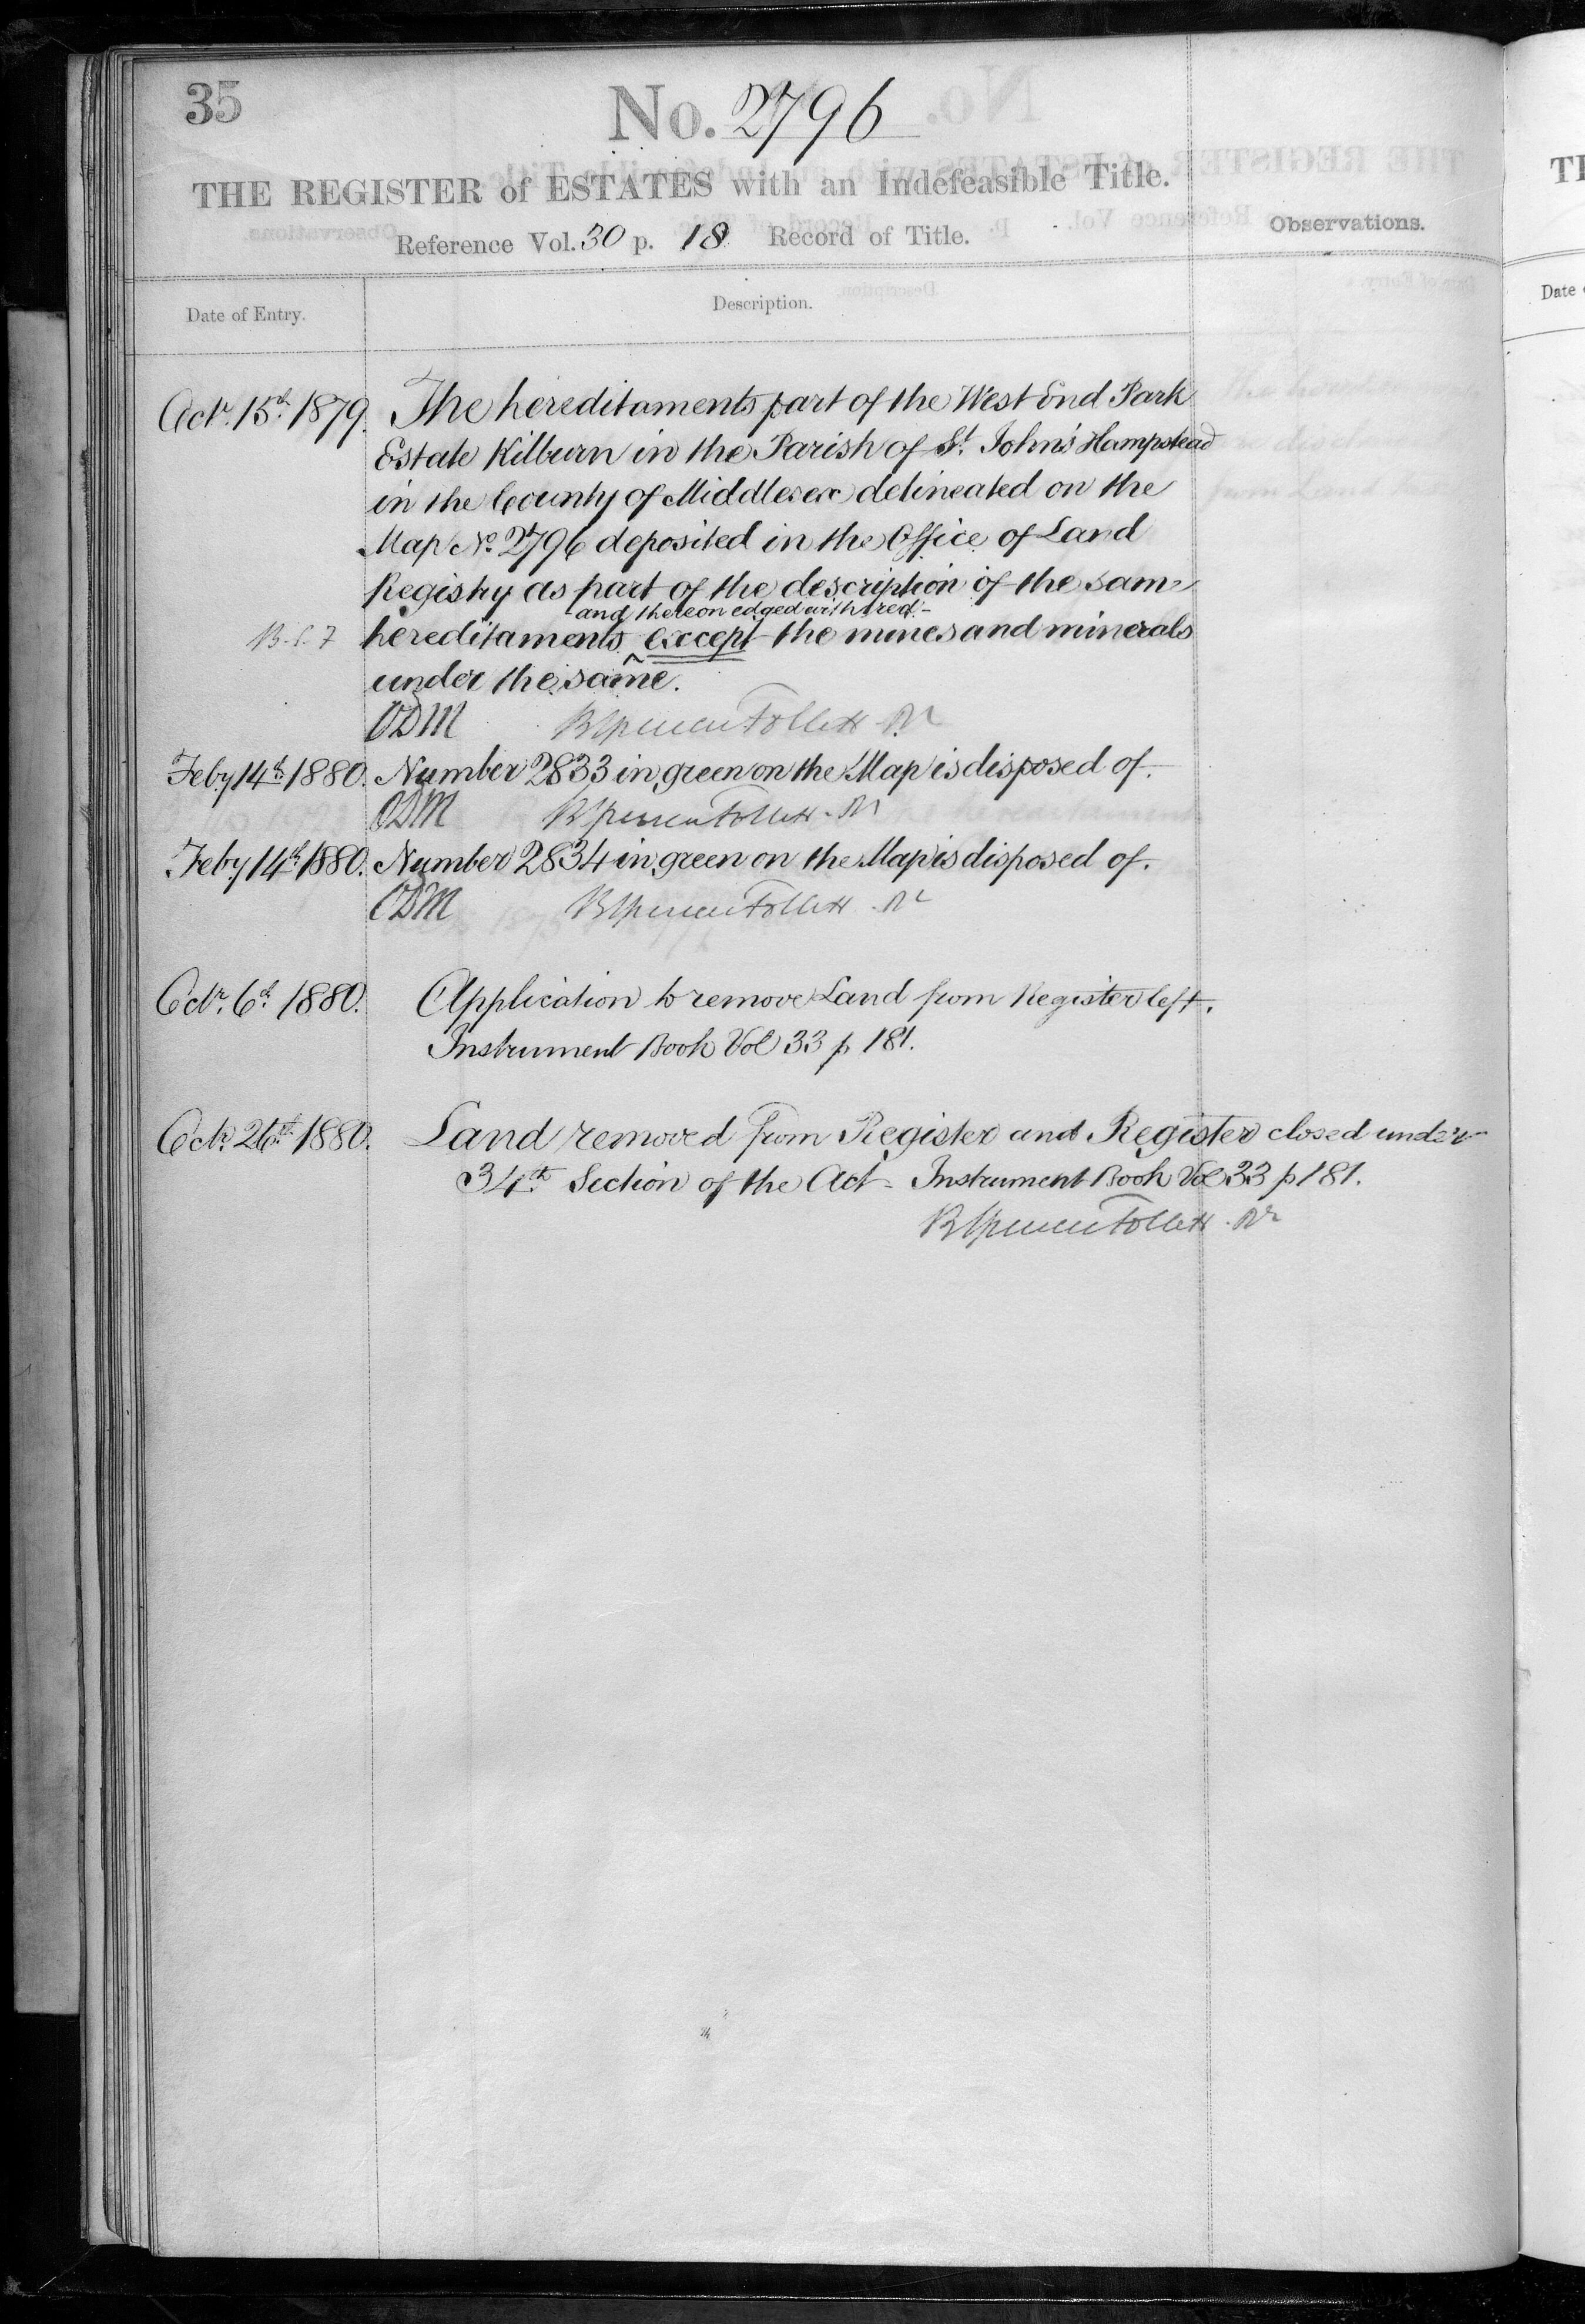 35
No. 2796
THE REGISTER of ESTATES with an Indefeasible Title.
Reference Vol. 30 p. 18 Record of Title.
Observations.
Date of Entry.
Description.
Octr. 15th 1879. The hereditaments part of the West End Park
Estate Kilburn in the Parish of St. John's Hampstead
in the County of Middlesex delineated on the
Map No. 2796 deposited in the Office of Land
Registry as part of the description of the same
and thereon edged with red
hereditaments ^ except the mines and minerals
under the same.
ODM BSpencer Follett Rr
Feby 14th 1880. Number 2833 in green on the Map is disposed of.
ODM BSpencer Follett Rr
Feby 14th 1880. Number 2834 in green on the Map is disposed of.
ODM BSpencer Follett Rr
Octr. 6th 1880. Application to remove Land from Register left.
Instrument Book Vol 33 p 181.
Octr. 26th 1880. Land removed from Register and Register closed under
34th Section of the Act - Instrument Book Vol 33 p 181.
BSpencer Follett Rr
TH
Date